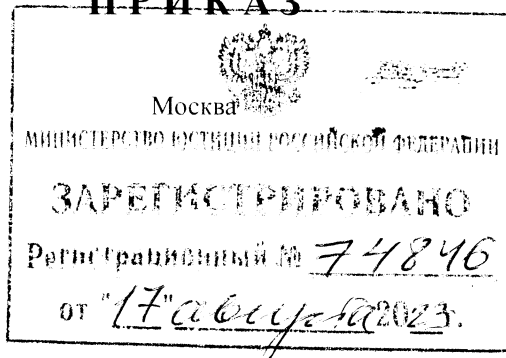 ПРИКАЗ
Москва
МИНИСТЕРСТВО ЮСТИЦИИ РОССИЙСКОЙ ФЕДЕРАЦИИ
ЗАРЕГИСТРИРОВАНО
Регистрационный № 74846
от "17" августа 2023г.